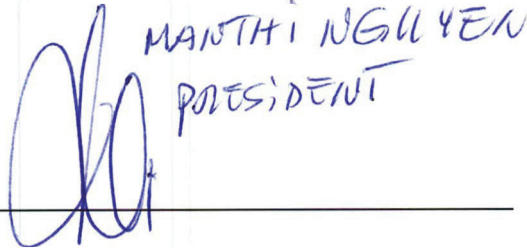 MANTHI NGUYEN
PRESIDENT